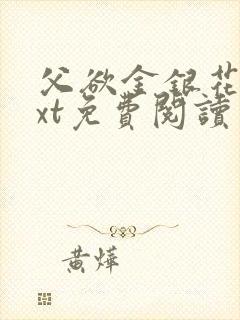 父欲金銀花
xt免費閱讀
黃燁